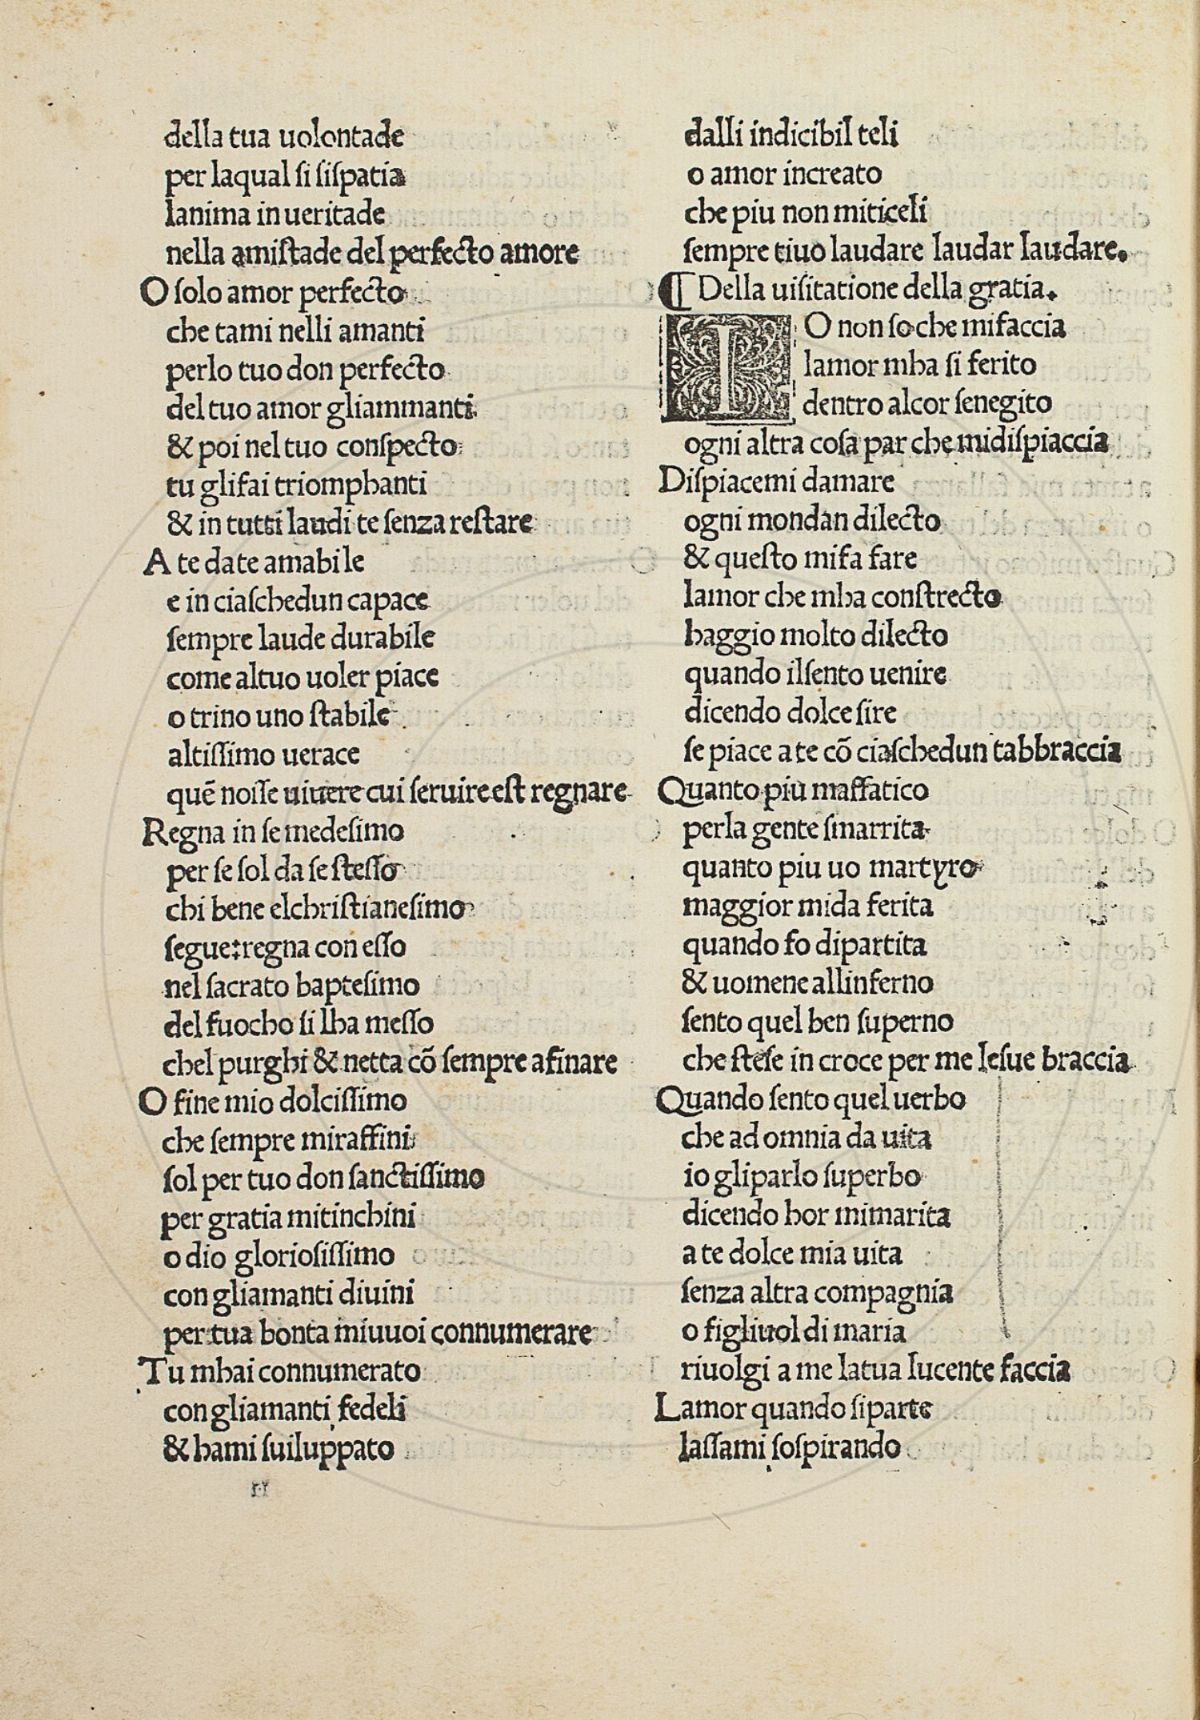 della tua uolontade
per laqual si sispatia
lanima in ueritade
nella amistade del perfecto amore
O solo amor perfecto
che tami nelli amanti
perlo tuo don perfecto
del tuo amor gliammanti
& poi nel tuo conspecto
tu glifai triomphanti
& in tutti laudi te senza restare
A te date amabile
e in ciaschedun capace
sempre laude durabile
come altuo uoler piace
o trino uno stabile
altissimo uerace
quē noisse uiuere cui seruire est regnare
Regna in se medesimo
per se sol da se stesso
chi bene elchristianesimo
segue:regna con esso
nel sacrato baptesimo
del fuocho si lha messo
chel purghi & netta cō sempre afinare
O fine mio dolcissimo
che sempre miraffini
sol per tuo don sanctissimo
per gratia mitinchini
o dio gloriosissimo
con gliamanti diuini
per tua bonta miuuoi connumerare
Tu mhai connumerato
con gliamanti fedeli
& hami suiluppato
dalli indicibil teli
o amor increato
che piu non miticeli
sempre tiuo laudare laudar laudare.
¶ Della uisitatione della gratia.
IO non so che mifaccia
lamor mha si ferito
dentro alcor senegito
ogni altra cosa par che midispiaccia
Dispiacemi damare
ogni mondan dilecto
& questo mifa fare
lamor che mha constrecto
haggio molto dilecto
quando ilsento uenire
dicendo dolce sire
se piace a te cō ciaschedun tabbraccia
Quanto piu maffatico
perla gente smarrita
quanto piu uo martyro
maggior mida ferita
quando fo dipartita
& uomene allinferno
sento quel ben superno
che stese in croce per me Iesue braccia
Quando sento quel uerbo
che ad omnia da uita
io gliparlo superbo
dicendo hor mimarita
a te dolce mia uita
senza altra compagnia
o figliuol di maria
riuolgi a me latua lucente faccia
Lamor quando siparte
lassami sospirando